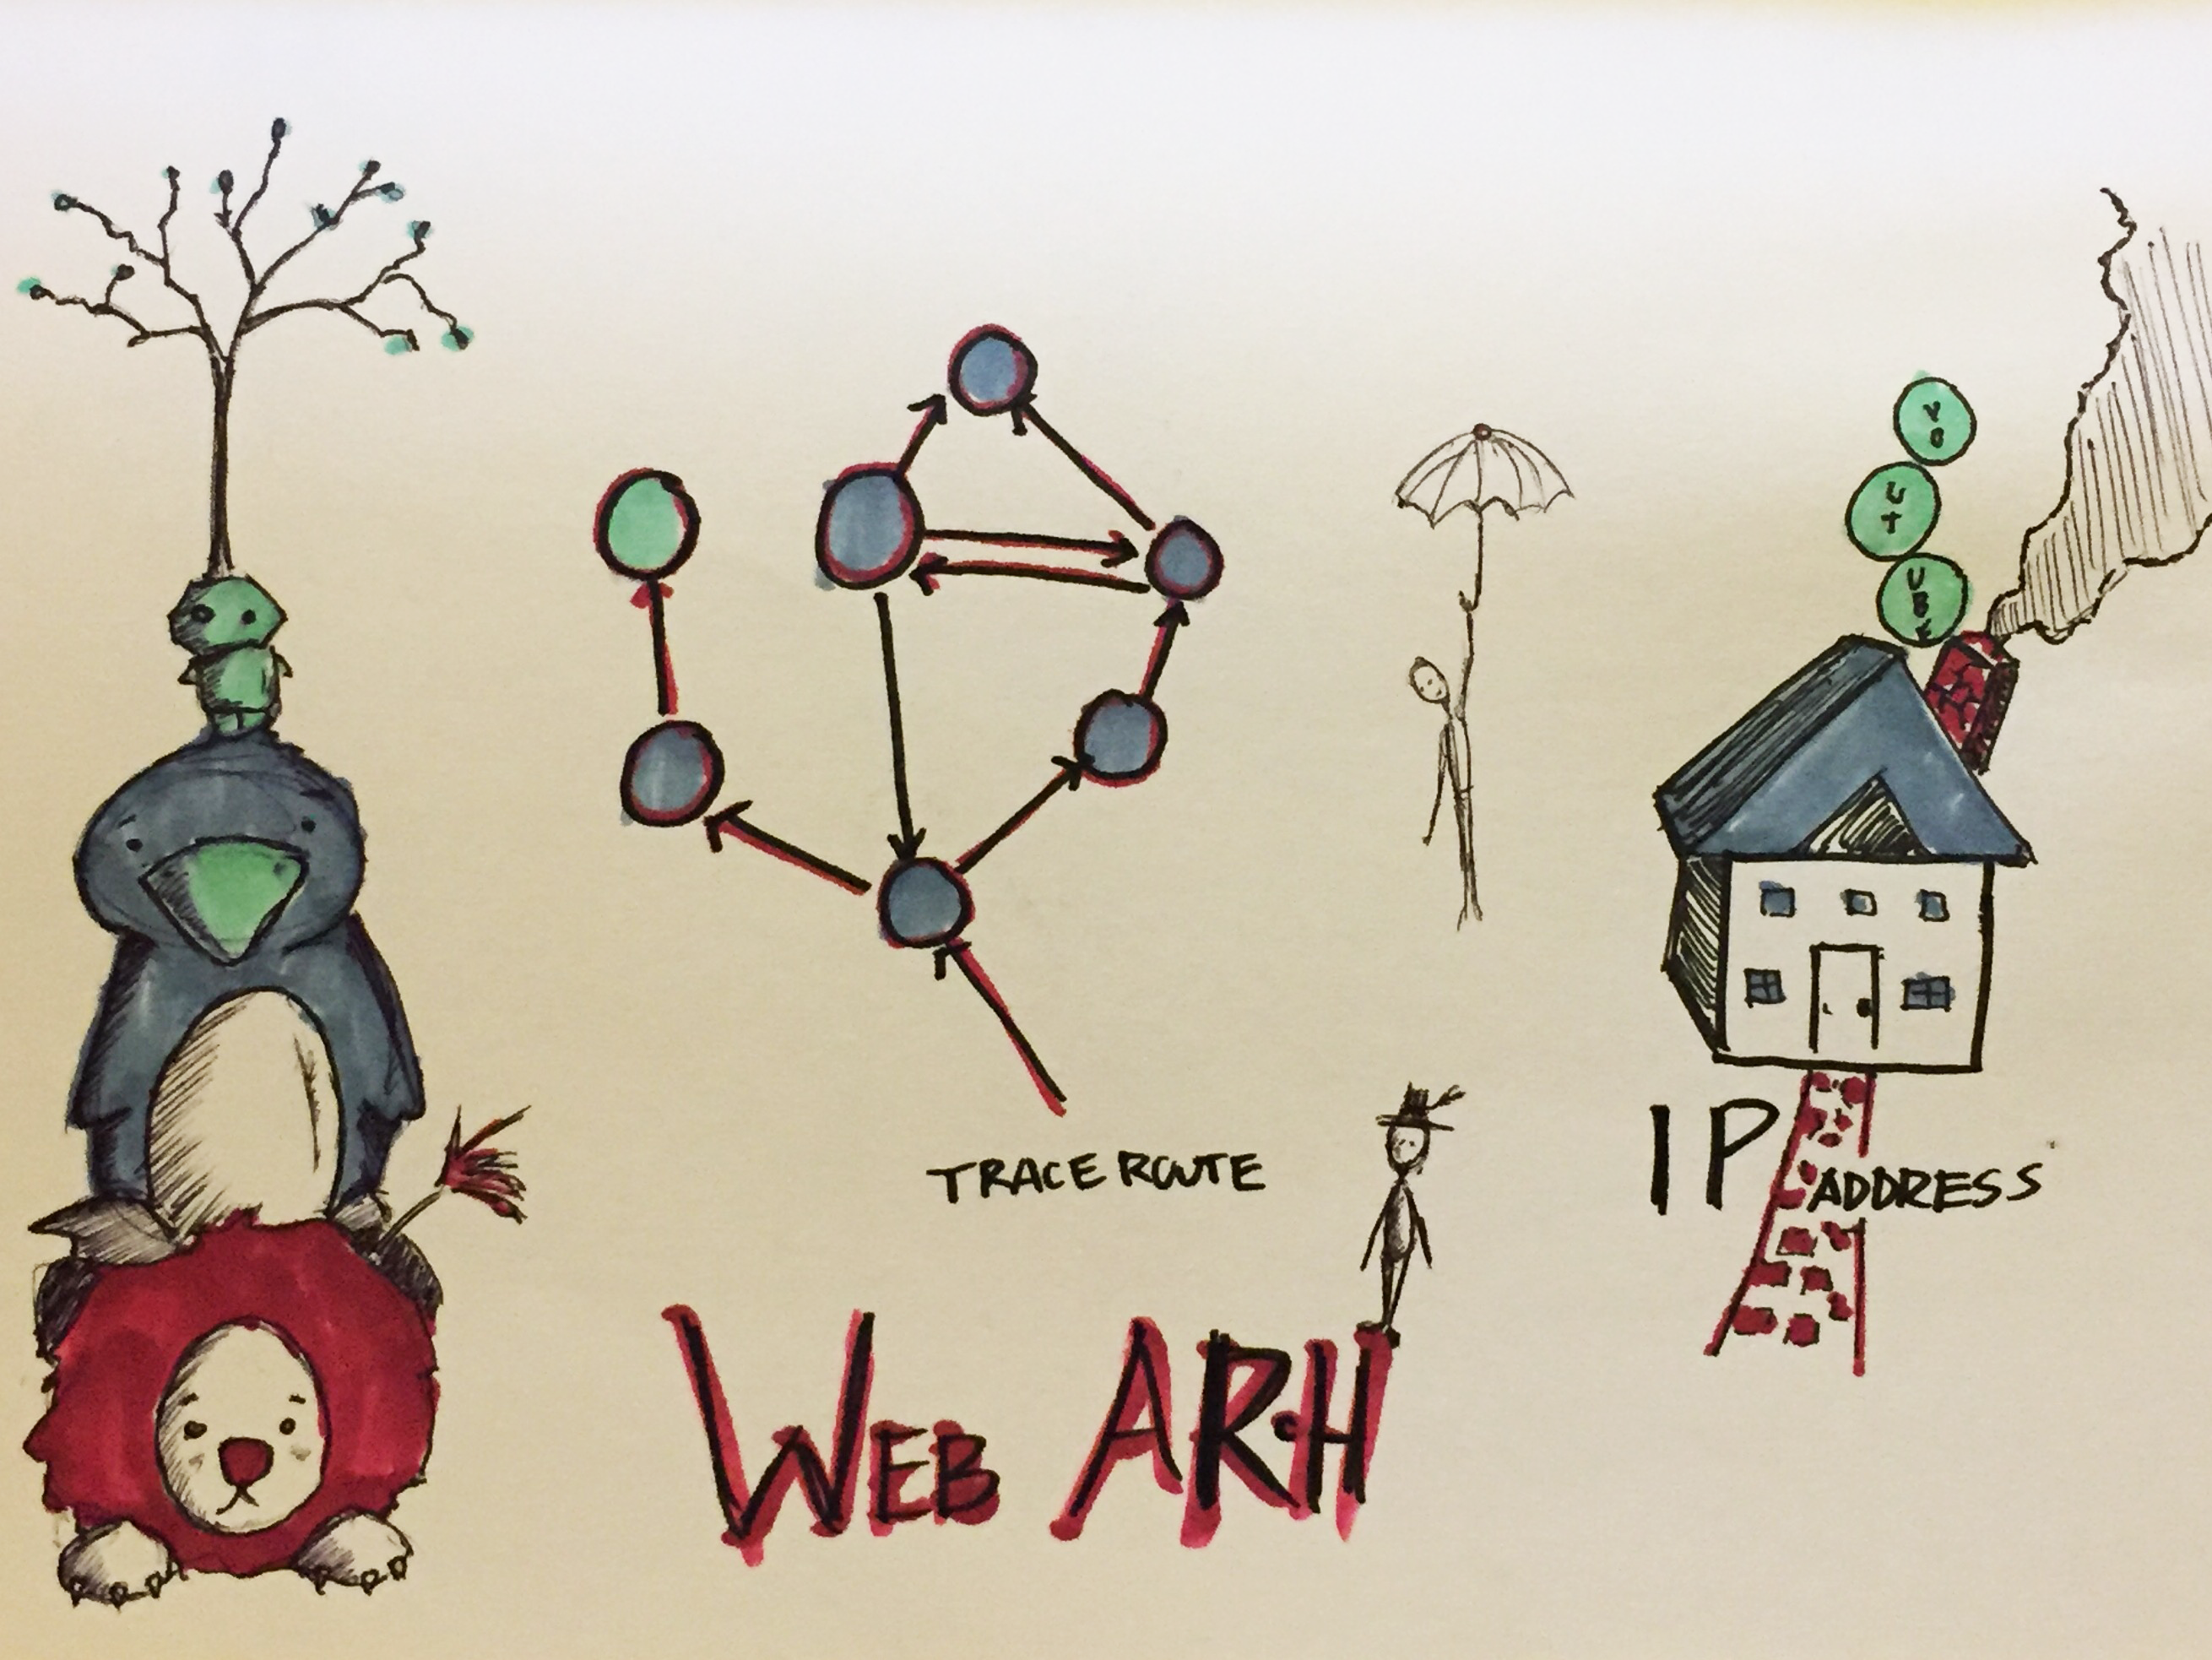 YO
UT
UBE
TRACE ROUTE
IP ADDRESS
WEB ARH